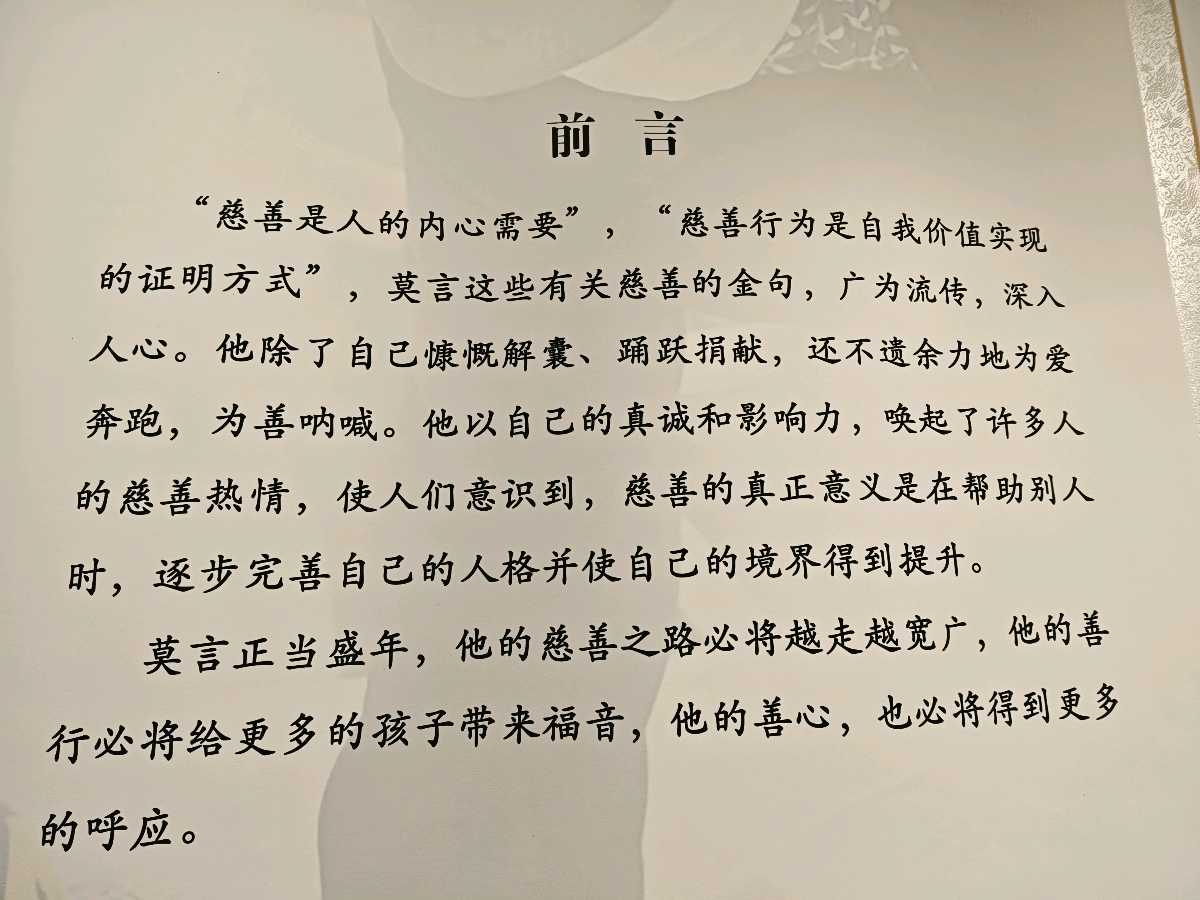 前言
“慈善是人的内心需要”，“慈善行为是自我价值实现
的证明方式”，莫言这些有关慈善的金句，广为流传，深入
人心。他除了自己慷慨解囊、踊跃捐献，还不遗余力地为爱
奔跑，为善呐喊。他以自己的真诚和影响力，唤起了许多人
的慈善热情，使人们意识到，慈善的真正意义是在帮助别人
时，逐步完善自己的人格并使自己的境界得到提升。
莫言正当盛年，他的慈善之路必将越走越宽广，他的善
行必将给更多的孩子带来福音，他的善心，也必将得到更多
的呼应。